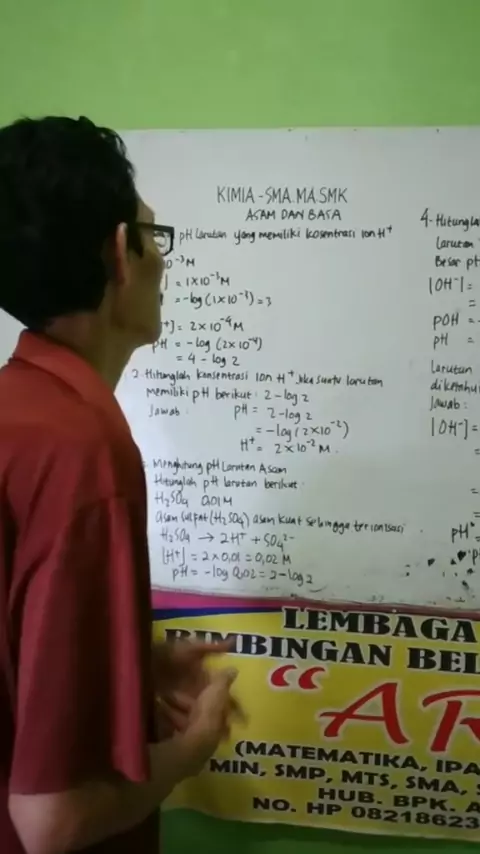 KIMIA - SMA.MA.SMK
ASAM DAN BASA
pH larutan yang memiliki kosentrasi ion H⁺
0⁻³M
] = 1x10⁻³M
= -log (1x10⁻³) = 3
⁺] = 2x10⁻⁴M
pH = -log (2x10⁻⁴)
= 4 - log 2
2. Hitunglah konsentrasi ion H⁺ Jika suatu larutan
memiliki pH berikut : 2 - log 2
Jawab : pH = 2 - log 2
= -log (2x10⁻²)
H⁺ = 2x10⁻² M.
Menghitung pH Larutan Asam
Hitunglah pH larutan berikut :
H₂SO₄ 0,01 M
Asam sulfat (H₂SO₄) asam kuat sehingga terionisasi
H₂SO₄ → 2H⁺ + SO₄²⁻
[H⁺] = 2 x 0,01 = 0,02 M
pH = -log 0,02 = 2 - log 2
4. Hitungla
Larutan
Besar pH
[OH⁻] =
=
pOH = -
pH =
Larutan
diketahui
Jawab :
[OH⁻] =
=
=
=
pH
LEMBAGA
BIMBINGAN BEL
“AR
(MATEMATIKA, IPA
MIN, SMP, MTS, SMA, S
HUB. BPK. A
NO. HP 08218623